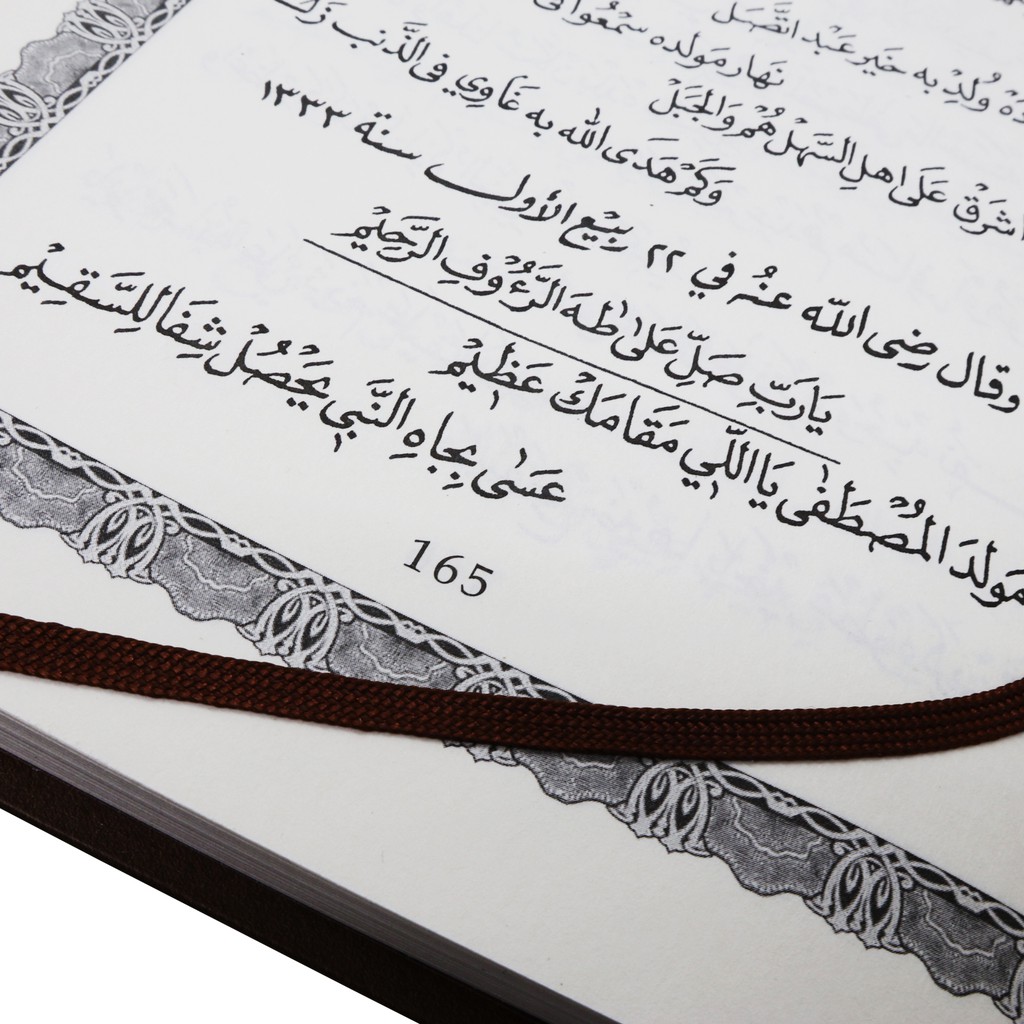 وُلِدْ به خَير عَبْد اتَّصَل
نَهَار مَولده سمْعوا
اشرَقْ عَلَى اهلِ السَّهلْ هُمْ وَالجَبَلْ
وَكَمْ هَدَى الله به غَاوِي فى الذَّنب
وقال رضى الله عنهُ في ٢٢ ربيْع الأول سنة ١٣٣٣
يَارَبِّ صَلِّ عَلىٰ طٰهَ الرَّءُوْفِ الرَّحِيْمِ
مَولدَ المُصْطَفٰى يَا اللّٰي مَقَامَكْ عَظِيْم
عَسٰى بِجاهِ النَّبي يَحْصُلْ شِفَا لِلسَّقِيْم
165